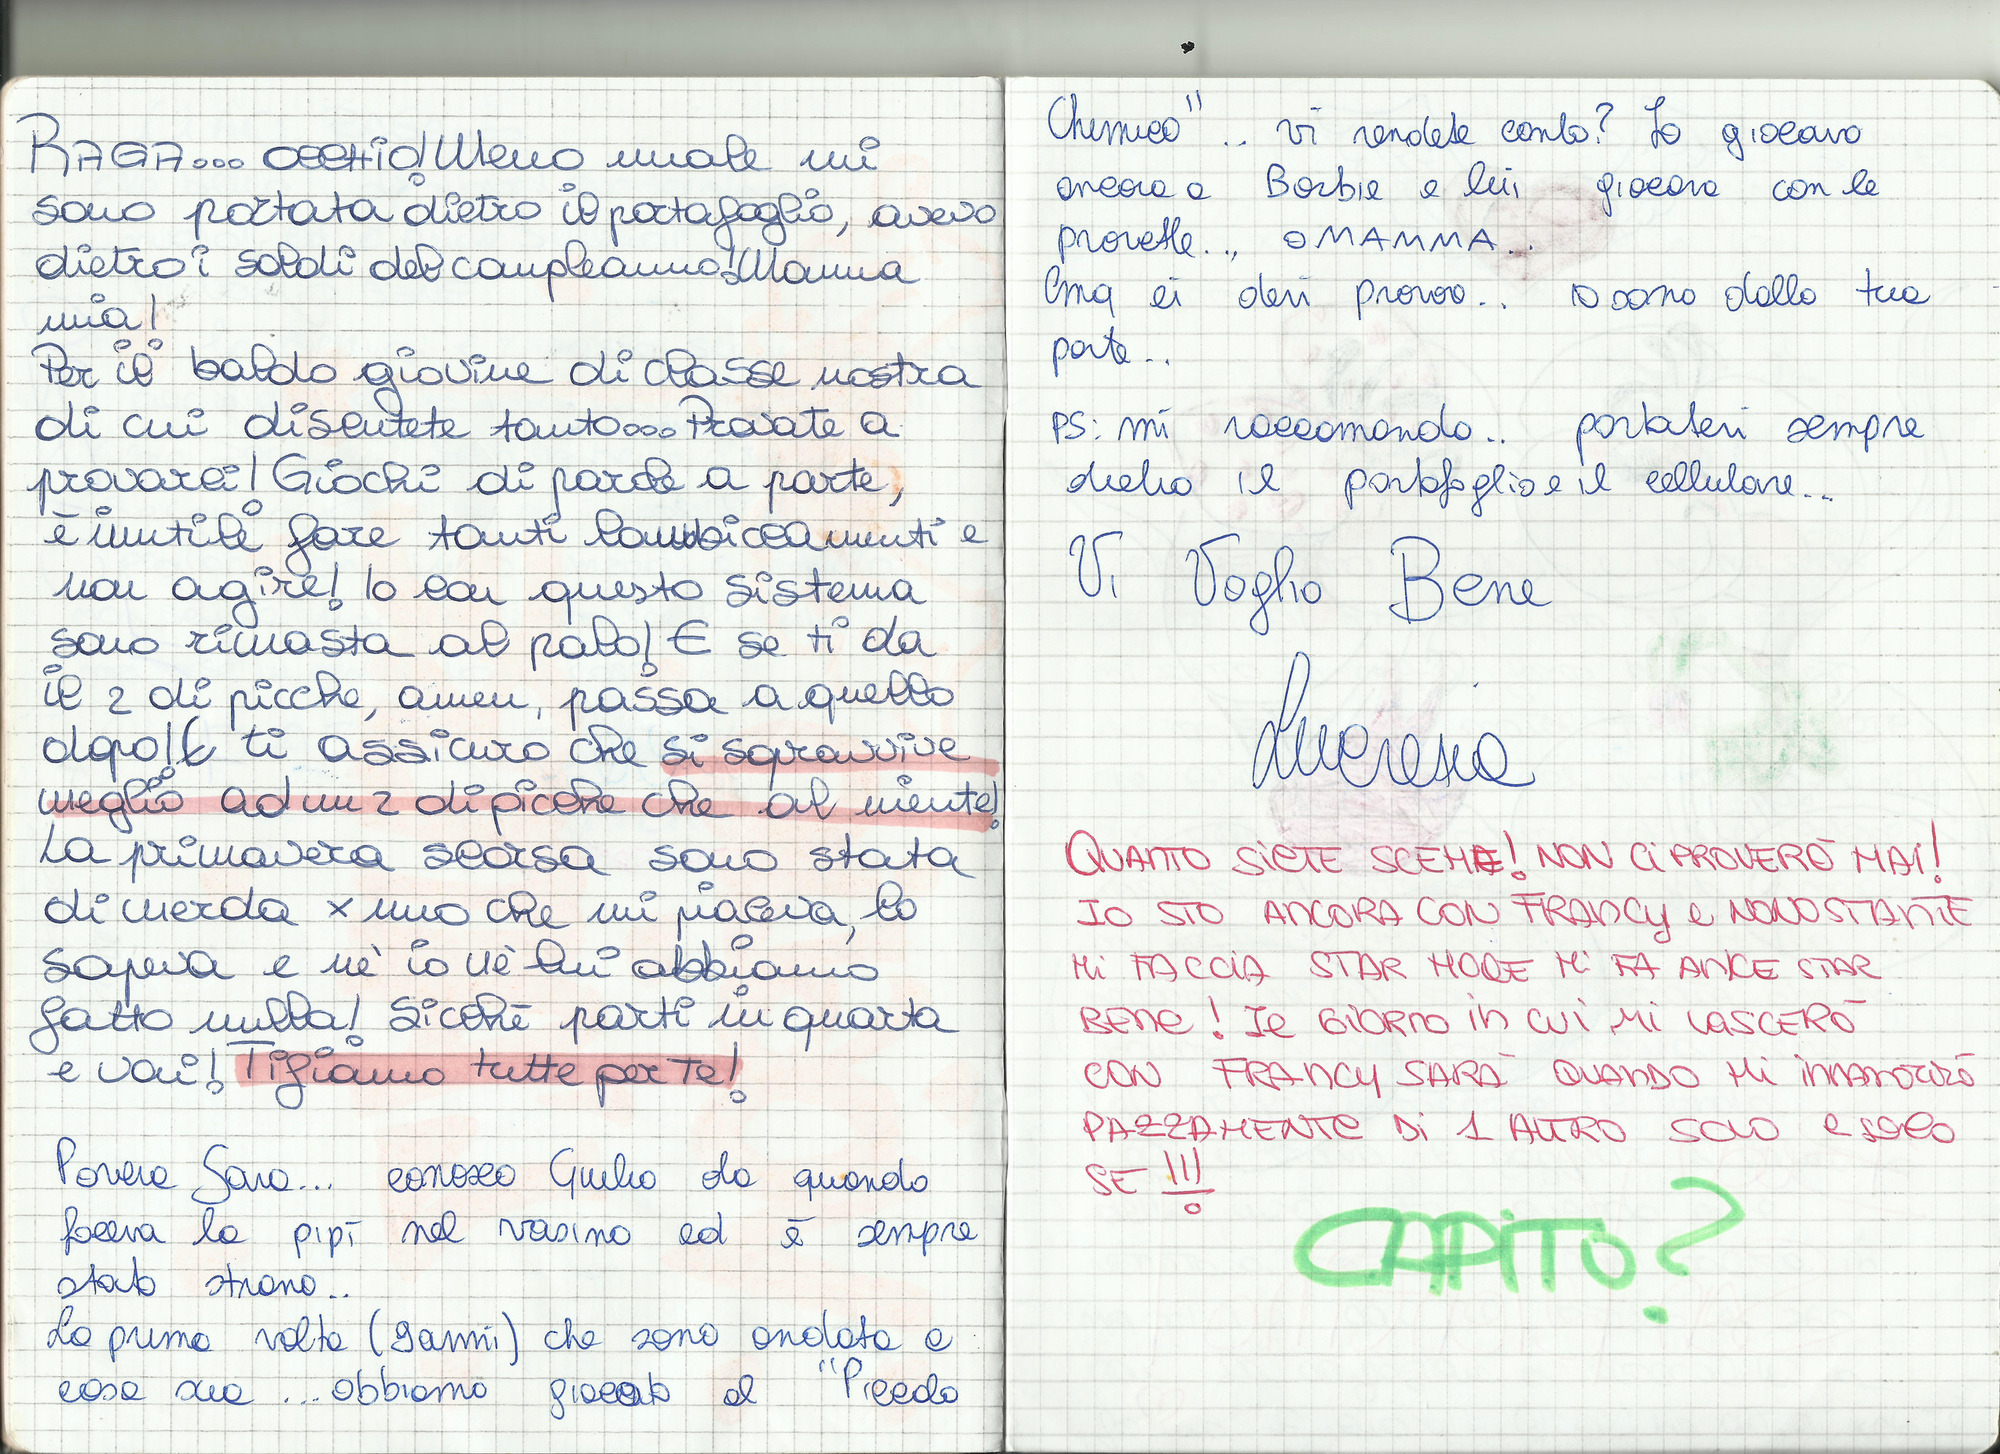 RAGA... OCCHIO! Meno male mi
sono portata dietro il portafoglio, avevo
dietro i soldi del compleanno! Mamma
mia!
Per il baldo giovine di classe nostra
di cui discutete tanto... Provate a
provarci! Giochi di parole a parte,
è inutile fare tanti lambiccamenti e
non agire! Io con questo sistema
sono rimasta al palo! E se ti da
il 2 di picche, amen, passa a quello
dopo! E ti assicuro che si sopravvive
meglio ad un 2 di picche che al niente!
La primavera scorsa sono stata
di merda x uno che mi piaceva, lo
sapeva e nè io nè lui abbiamo
fatto nulla! Sicchè parti in quarta
e vai! Tifiamo tutte per Te!
Povera Sara... conosco Giulio da quando
faceva la pipì nel vasino ed è sempre
stato strano..
La prima volta (9anni) che sono andata a
casa sua ... abbiamo giocato al "Piccolo
Chimico" .. vi rendete conto? Io giocavo
ancora a Barbie e lui giocava con le
provette.., O MAMMA..
Cmq ci devi provare.. io sono dalla tua
parte..
PS: mi raccomando.. portatevi sempre
dietro il portafoglio e il cellulare...
Vi Voglio Bene
Lucrezia
QUANTO SIETE SCEME! NON CI PROVERÒ MAI!
IO STO ANCORA CON FRANCY e NONOSTANTE
MI FACCIA STAR MALE MI FA ANCHE STAR
BENE! IL GIORNO in CUI MI LASCERÒ
CON FRANCY SARÀ QUANDO MI INNAMORERÒ
PAZZAMENTE DI 1 ALTRO SOLO e SOLO
SE !!!
CAPITO?